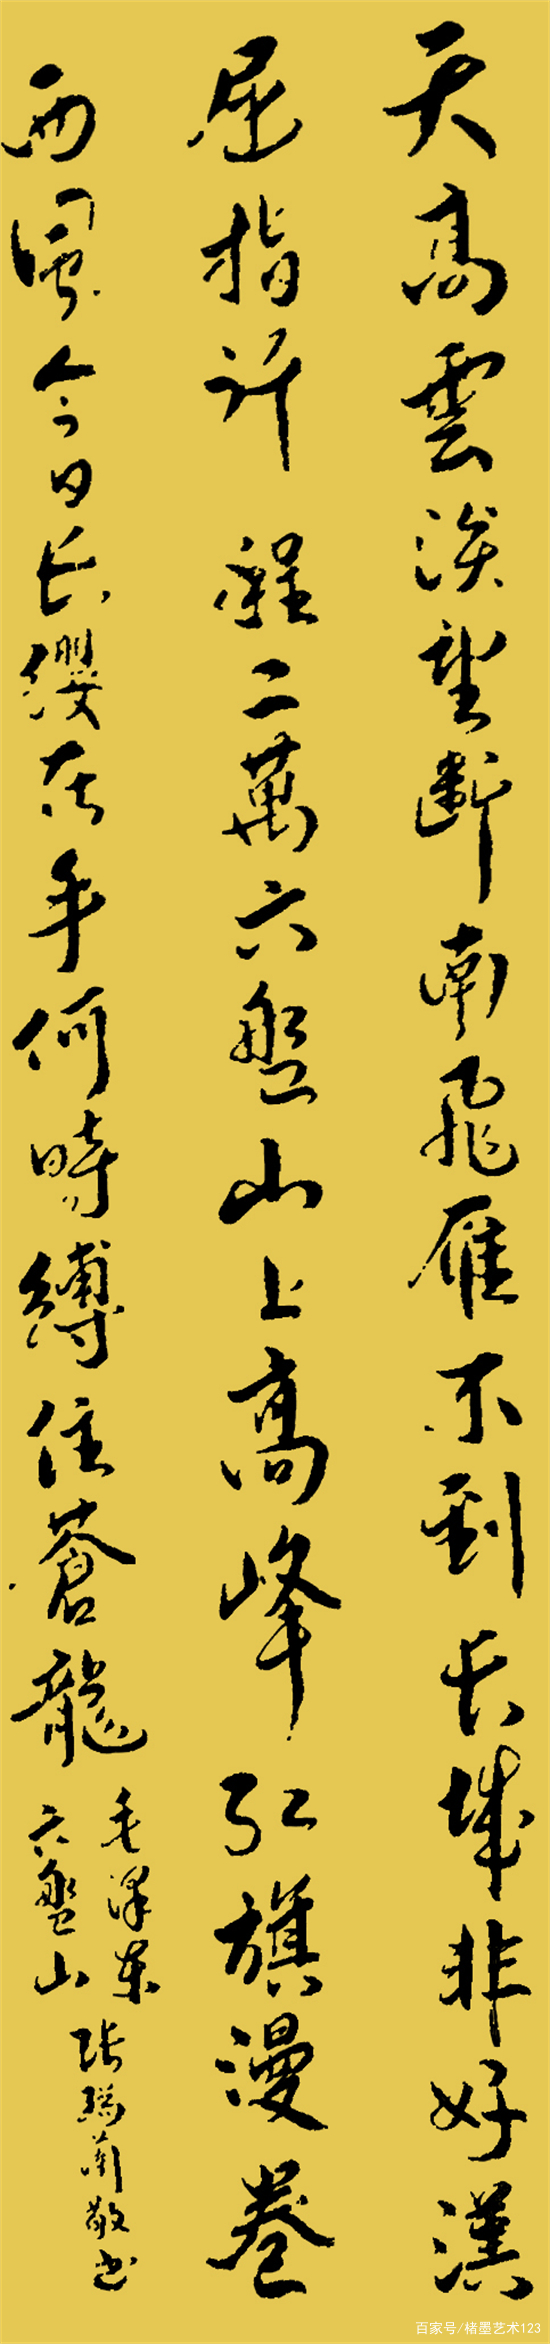 天高雲淡望斷南飛雁不到长城非好漢
屈指计程二萬六盤山上高峰红旗漫卷
西風今日长纓在手何時縛住蒼龍
毛泽东
六盤山
张瑞蘭敬书
百家号/楮墨艺术123